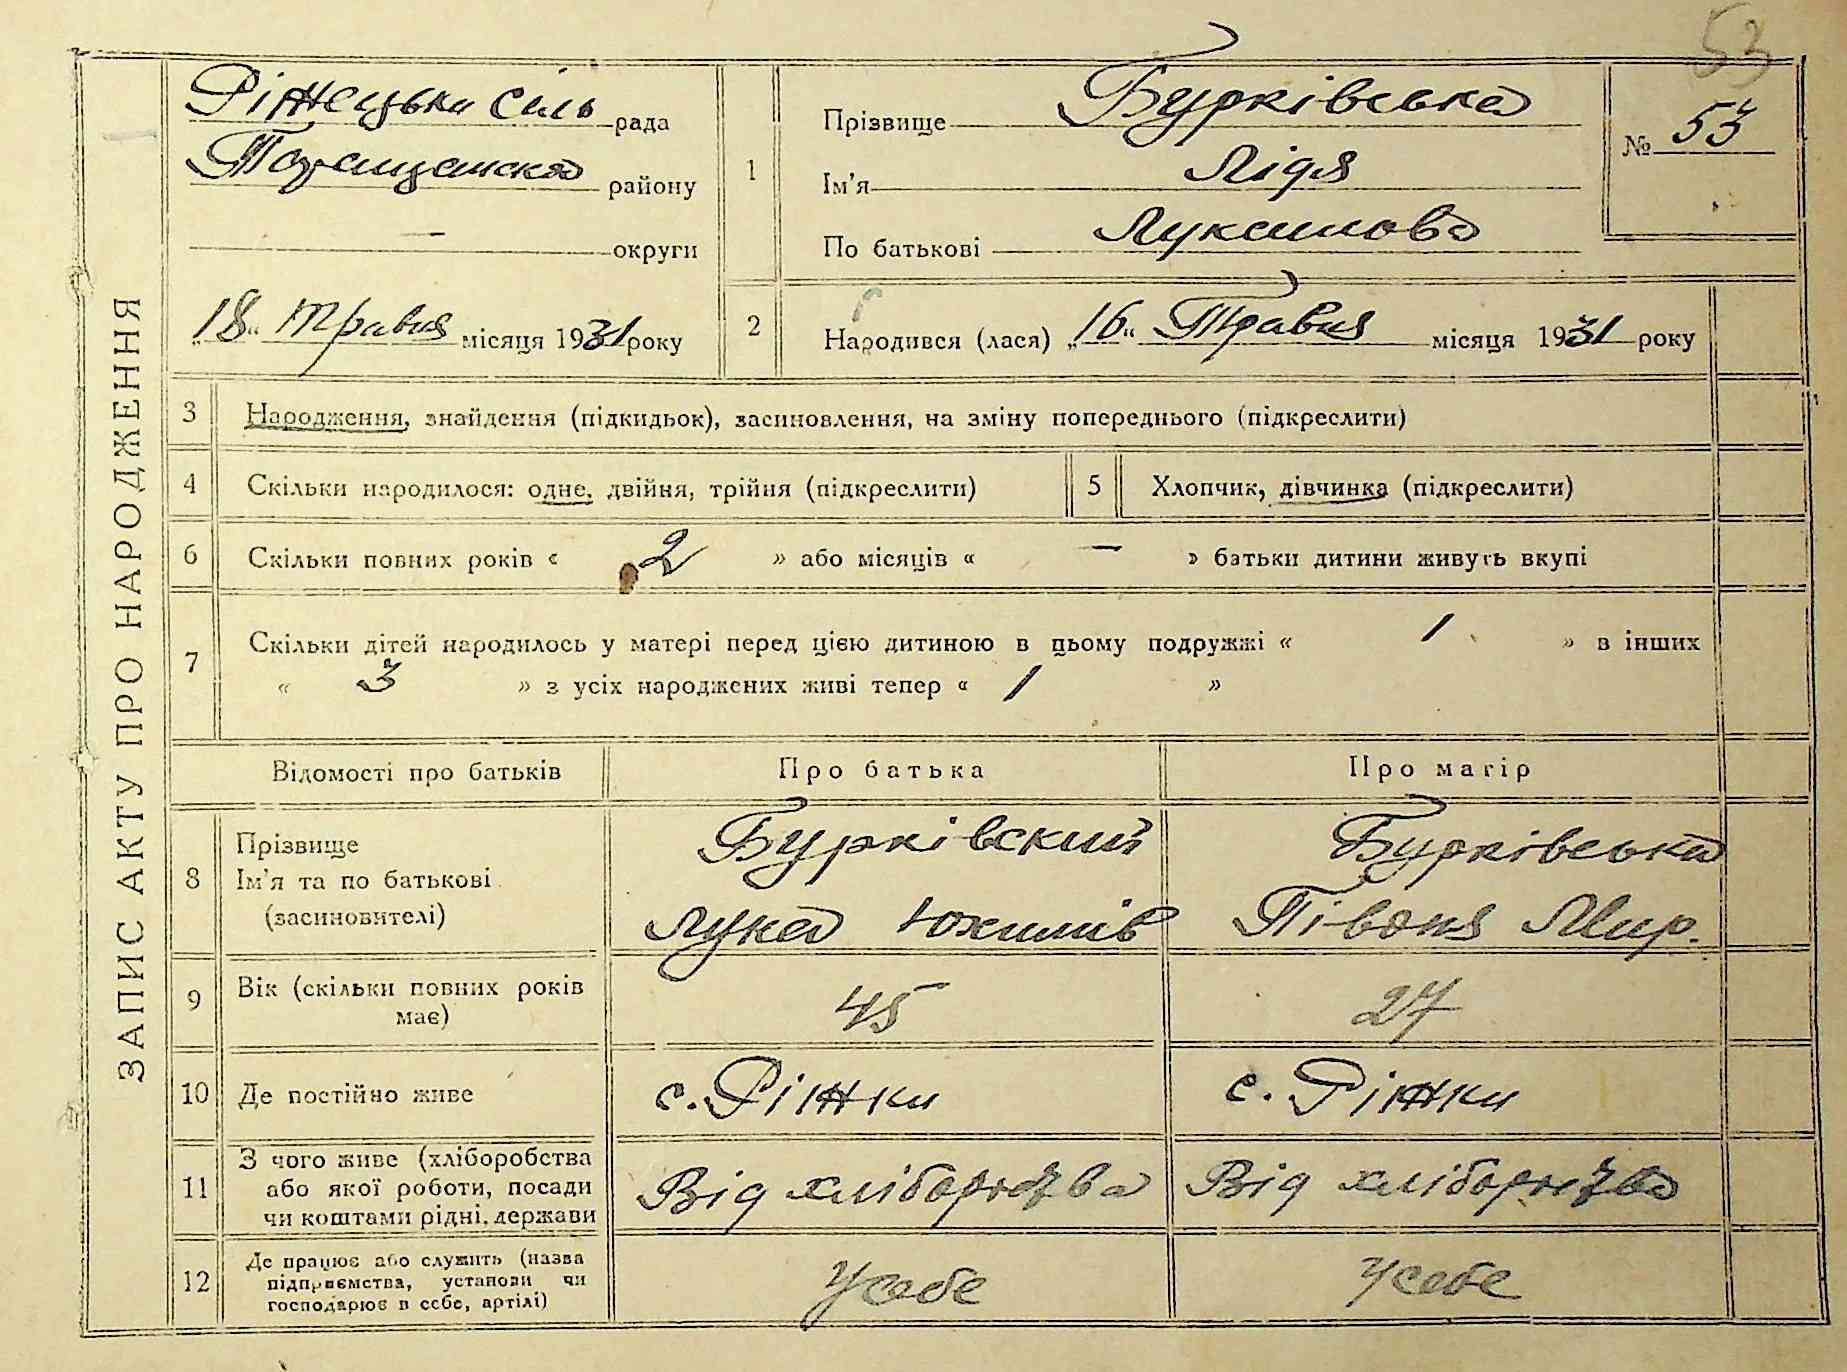 53
ЗАПИС АКТУ ПРО НАРОДЖЕННЯ
Ріжецька Сіль рада
Таращанска району
— округи
„18“ Травня місяця 1931 року
1
Прізвище Бурківська
Ім'я Лідя
По батькові Лукимова
№ 53
2
Народився (лася) „16“ Травня місяця 1931 року
3 Народження, знайдення (підкидьок), засиновлення, на зміну попереднього (підкреслити)
4 Скільки народилося: одне, двійня, трійня (підкреслити)
5 Хлопчик, дівчинка (підкреслити)
6 Скільки повних років « 2 » або місяців « — » батьки дитини живуть вкупі
7 Скільки дітей народилось у матері перед цією дитиною в цьому подружжі « 1 » в інших
« 3 » з усіх народжених живі тепер « 1 »
Відомості про батьків Про батька Про матір
8
Прізвище
Ім'я та по батькові
(засиновителі)
Бурківский
Лука Юхимів
Бурківська
Півоня Мир.
9 Вік (скільки повних років
має)
45
27
10 Де постійно живе
с. Ріжки
с. Ріжки
11
З чого живе (хліборобства
або якої роботи, посади
чи коштами рідні, держави
Від хліборобства
Від хліборобства
12
Де працює або служить (назва
підприємства, установи чи
господарює в себе, артілі)
У себе
У себе